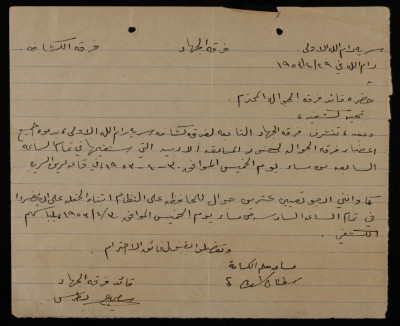 سرية رام الله الاولى فرقة الجهاد فرقة الكشافه
رام الله في ٢٩/٤/١٩٥٢
حضرة قائد فرقة الجوالة المحترم
تحية كشفيه ،
وبعد ، تتشرف فرقة الجهاد التابعة لفرق كشافة سرية رام الله الاولى ، بدعوة جميع
اعضاء فرقة الجوالة لحضور المسابقة الادبية التي ستقيمها في تمام الساعة
السابعة من مساء يوم الخميس الموافق ٣٠ - ٤ - ١٩٥٣ ، في قاعة السرية
كما وانني ارجو تعيين عشرين جوال للمحافظة على النظام اثناء الحفلة على ان يحضروا
في تمام الساعة السادسة من مساء يوم الخميس الموافق ٣٠/٤/١٩٥٣ ، بلباسهم
الكشفي .
وتفضلوا بقبول فائق الاحترام
مساعد معلم الكشافة قائد فرقة الجهاد